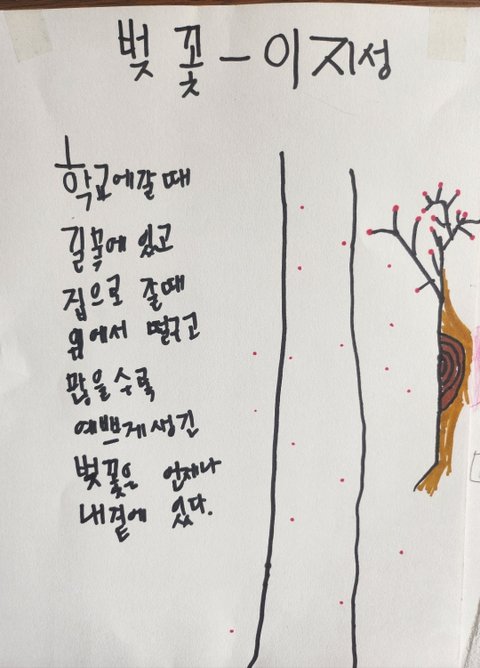 벚꽃-이지성
학교에갈때
길목에 있고
집으로 갈때
위에서 떨구고
많을수록
예쁘게생긴
벚꽃은 언제나
내곁에 있다.